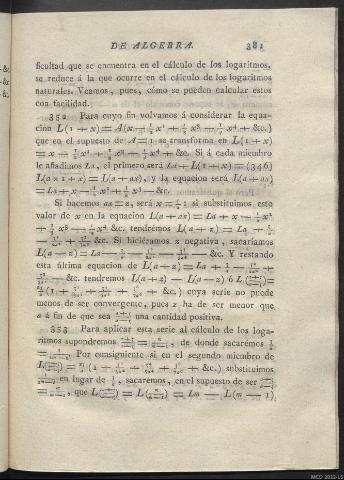 DE ALGEBRA. 381
ficultad que se encuentra en el cálculo de los logaritmos,
se reduce á la que ocurre en el cálculo de los logaritmos
naturales. Veamos, pues, cómo se pueden calcular estos
con facilidad.
352 Para cuyo fin volvamos á considerar la equa-
cion L(1 + x) = A(x − ½x² + ⅓x³ − ¼x⁴ + &c.)
que en el supuesto de A = 1 se transforma en L(1 + x)
= x − ½x² + ⅓x³ − ¼x⁴ + &c. Si á cada miembro
le añadimos La, el primero será La + L(1 + x) = (346)
L(a × 1 + x) = L(a + ax), y la equacion será L(a + ax)
= La + x − ½x² + ⅓x³ − &c.
Si hacemos ax = z, será x = z/a; si substituimos este
valor de x en la equacion L(a + ax) = La + x − ½x²
+ ⅓x³ − ¼x⁴ &c. tendrémos L(a + z) = La + z/a
&c. Si hiciéramos z negativa, sacaríamos
L(a − z) = La − z/a − &c. Y restando
esta última equacion de L(a + z) = La + z/a
&c. tendremos L(a + z) − L(a − z) ó L((a+z)/(a−z)) =
&c.) cuya serie no puede
menos de ser convergente, pues z ha de ser menor que
a á fin de que sea (a+z)/(a−z) una cantidad positiva.
353 Para aplicar esta serie al cálculo de los loga-
ritmos supondremos de donde sacarémos
Por consiguiente si en el segundo miembro de
&c.) substituimos
en lugar de z/a, sacaremos, en el supuesto de ser
que = Lm − L(m − 1),
MCD 2022-L5